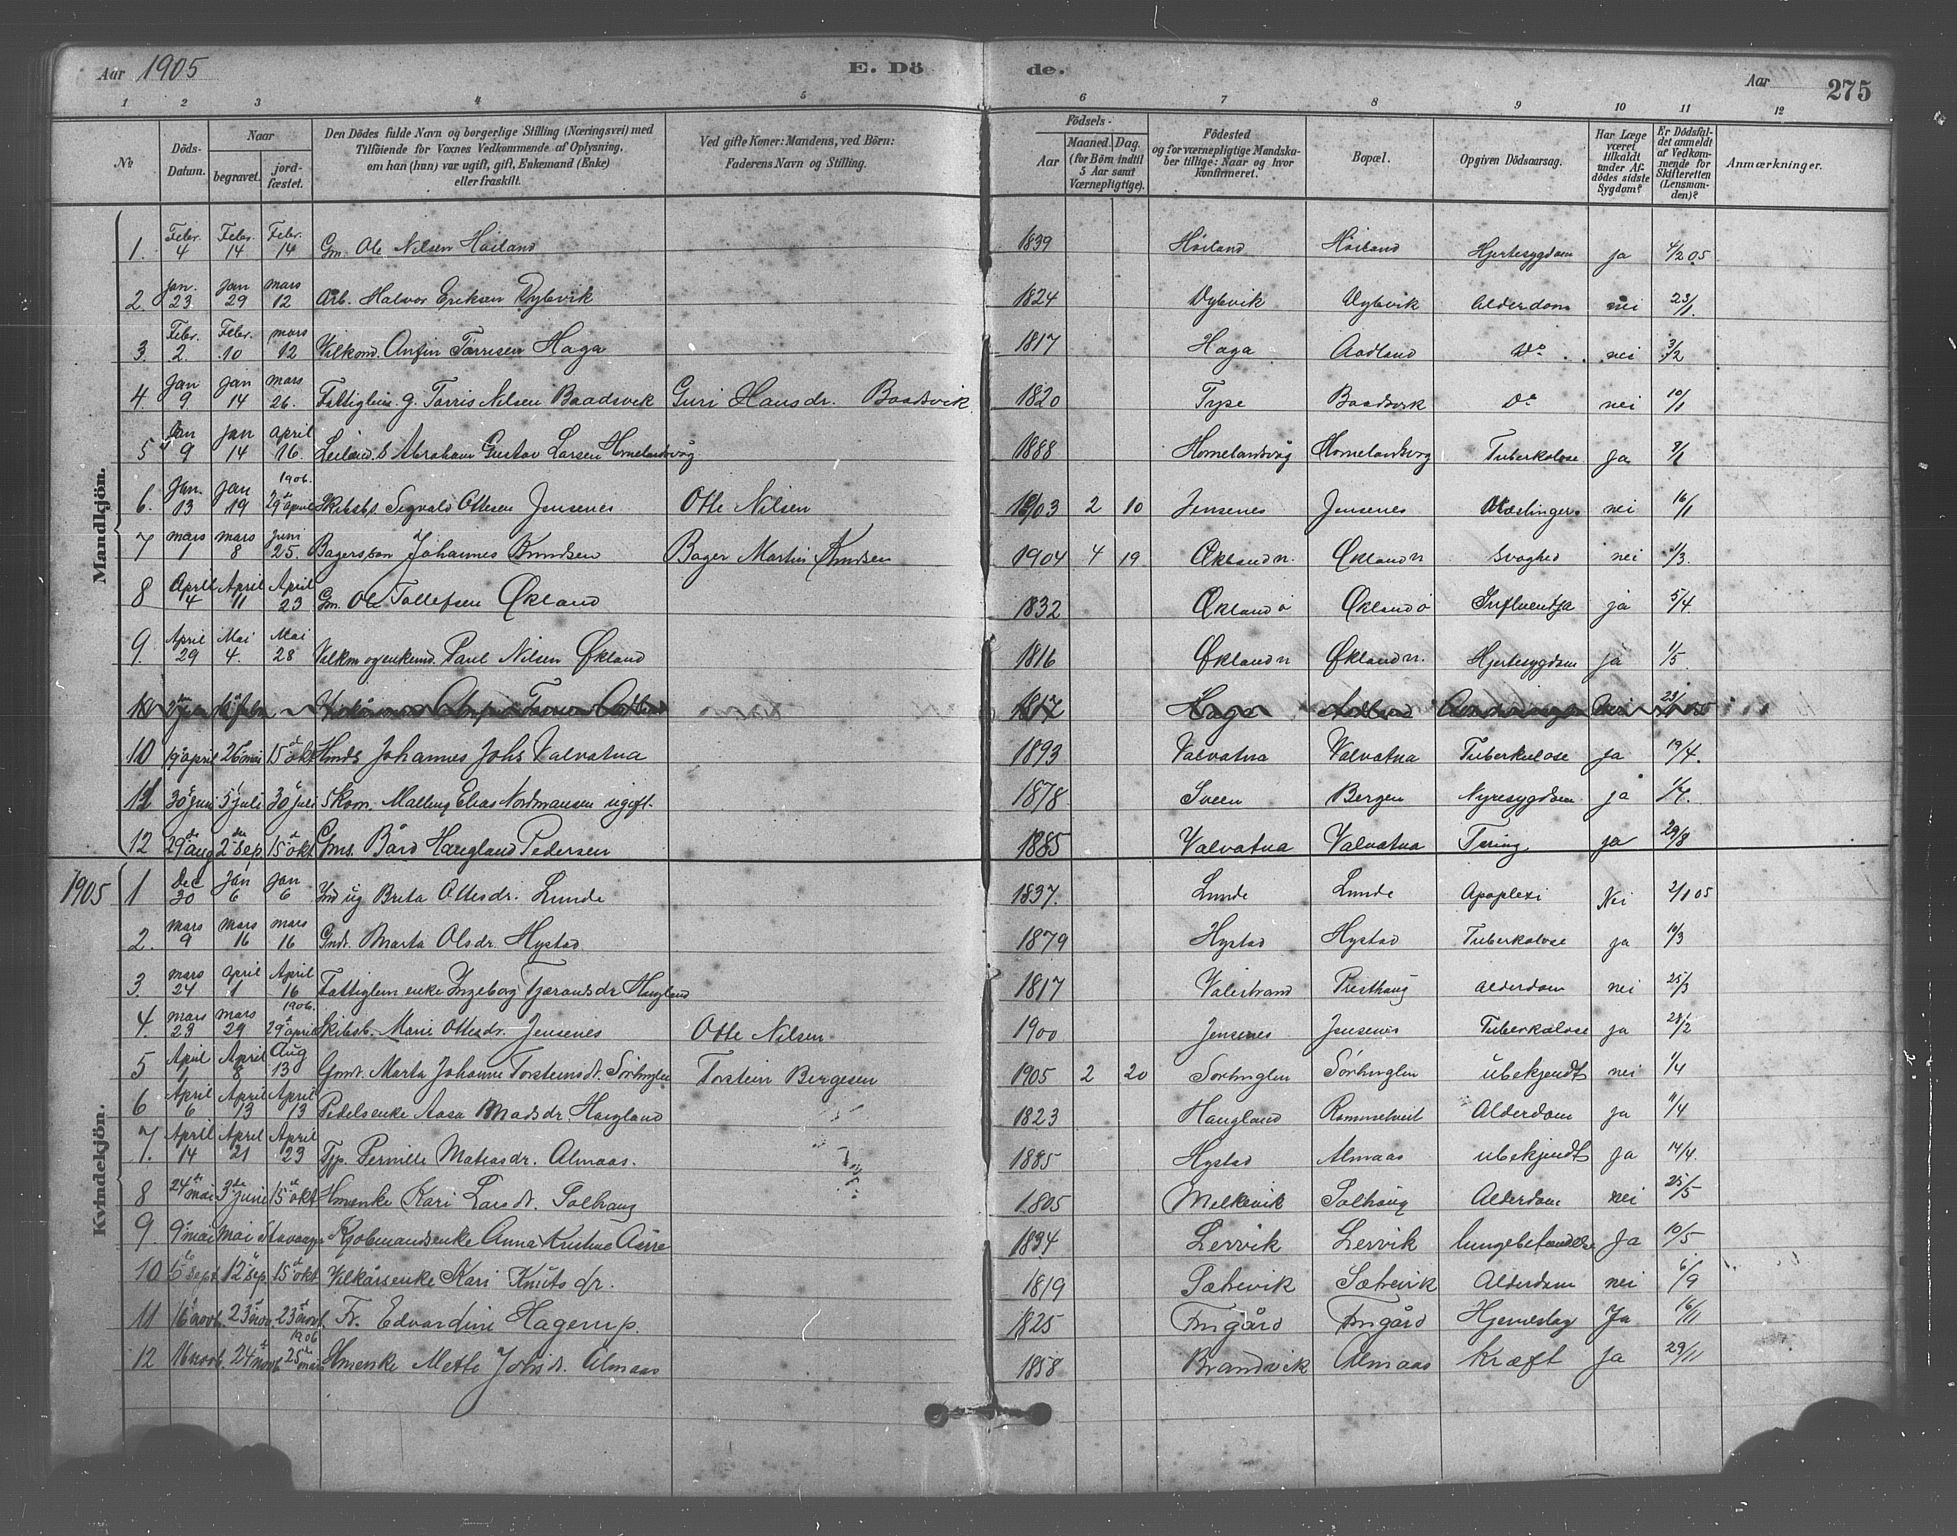 Aar 1905 E. Dö de. Aar 275
1 2 3 4 5 6 7 8 9 10 11 12
No | Döds-Datum. | Naar begravet. | Naar jord-fæstet. | Den Dödes fulde Navn og borgerlige Stilling (Næringsvei) med Tilföiende for Voxnes Vedkommende af Oplysning, om han (hun) var ugift, gift, Enkemand (Enke) eller fraskilt. | Ved gifte Koner: Mandens, ved Börn: Faderens Navn og Stilling. | Födsels- Aar | Maaned. Dag. (for Börn indtil 5 Aar samt Værnepligtige). | Födested og for værnepligtige Mandska-ber tillige: Naar og hvor Konfirmeret. | Bopæl. | Opgiven Dödsaarsag. | Har Læge været tilkaldt under Af-dödes sidste Sygdom? | Er Dödsfal-det anmeldt af Vedkom-mende for Skifteretten (Lensman-den)? | Anmærkninger.
Mandkjön.
1. Febr. 4 Febr. 14 Febr. 14 Gm. Ole Nilsen Höiland 1839 Höiland Höiland Hjertesygdom ja 4/2 05
2. Jan. 23 Jan 29 mars 12 Arb. Halvor Eriksen Dybvik 1824 Dybvik Dybvik Alderdom nei 23/1
3. Febr. 2. Febr. 10 mars 12 Vilkm. Anfin Torrisen Haga 1817 Haga Aadland Do nei 3/2
4. Jan 9. Jan 14 mars 26. Fattiglem. g. Torris Nilsen Baadsvik Guri Hansdr. Baadsvik 1820 Tyse Baadsvik Do nei 10/1
5 Jan 9 Jan 14 April 16. Leilænd. s Abraham Gustav Larsen Hornelandsvåg 1888 Hornelandsvåg Hornelandsvåg Tuberkulose ja 9/1
6. Jan. 13 Jan 19 1906. 29 april Skibsbs Sigvald Ottesen Jensenes Otte Nilsen 1903 2 10 Jensenes Jensenes Mæslinger nei 16/1
7 mars 1 mars 8 Juni 25. Bagersson Johannes Knudsen Bager Martin Knudsen 1904 4 19 Økland n. Økland n Svaghed nei 1/3
8 April 4 April 11 April 23 Gm. Ole Tollefsen Økland 1832 Økland ö Økland ö Influendsa ja 5/4
9. April 29 Mai 4. Mai 28 Vilkm og enkem. Paul Nilsen Økland 1816 Økland n Økland n. Hjertesygdom ja 1/5
1817 Haga
10 19 april 26 mai 15 okt Hmds Johannes Johs Valvatna 1893 Valvatna Valvatna Tuberkulose ja 19/4.
11 30 juni 5 juli 30 juli Skom. Malling Elias Nordmansen ugift. 1878 Sveen Bergen Nyresygdom ja
12 29de aug 2de sep. 15 okt. Gms. Bård Haugland Pedersen 1885 Valvatna Valvatna Tæring ja 29/8
1905
Kvindekjön.
1 Dec 30 Jan 6 Jan 6 Ind ug Brita Ottesdr. Lunde 1837. Lunde Lunde Apoplexi Nei 2/1 05
2. mars 9 mars 16 mars 16 Gmdr. Marta Olsdr. Hystad 1879 Hystad Hystad Tuberkulose ja 10/3
3. mars 24 april 1 April 16 Fattiglem enke Ingeborg Tjerandsdr Haugland 1817 Valestrand Presthaug Alderdom nei 25/3
4. mars 23 mars 29 1906. 29 april Skibsb. Marie Ottesdr. Jensenes Otte Nilsen 1900 Jensenes Jensenes Tuberkulose ja
5 April 1 April 8 Aug 13 Gmdr. Marta Johanne Torsteinsdt. Sörhuglen Torstein Bergesen 1905 2 20 Sörhuglen Sörhuglen ubekjendt nei 1/4
6 April 6. April 13 April 13 Pedelsenke Aasa Madsdr. Haugland 1823 Haugland Rommetveit Alderdom ja 11/4
7. April 14 April 21 April 23 Tjp. Pernille Matiasdr. Almaas. 1885 Hystad Almaas ubekjendt ja 14/4.
8 24de mai 3de juni 15 okt Hmenke Kari Larsdt. Solhaug 1805 Melkevik Solhaug Alderdom nei 25/5
9. 9 mai mai Stavanger Kjöbmandsenke Anna Kristine Aarre 1834 Lervik Lervik lungebetændelse ja 10/5
10 6 sept. 12 sep. 15 okt. Vilkårsenke Kari Knutsdr. 1819 Sætrevik Sætrevik Alderdom nei 6/9
11 16 novb. 23 nov. 23 novb. Fr. Edvardine Hagerup. 1825 Tingård Tingård Hjerneslag Ja 16/11
12 16 novb. 24 novb 1906 25 mars Hmenke Mette Johsdt. Almaas 1858 Brandvik Almaas Kræft Ja 29/11